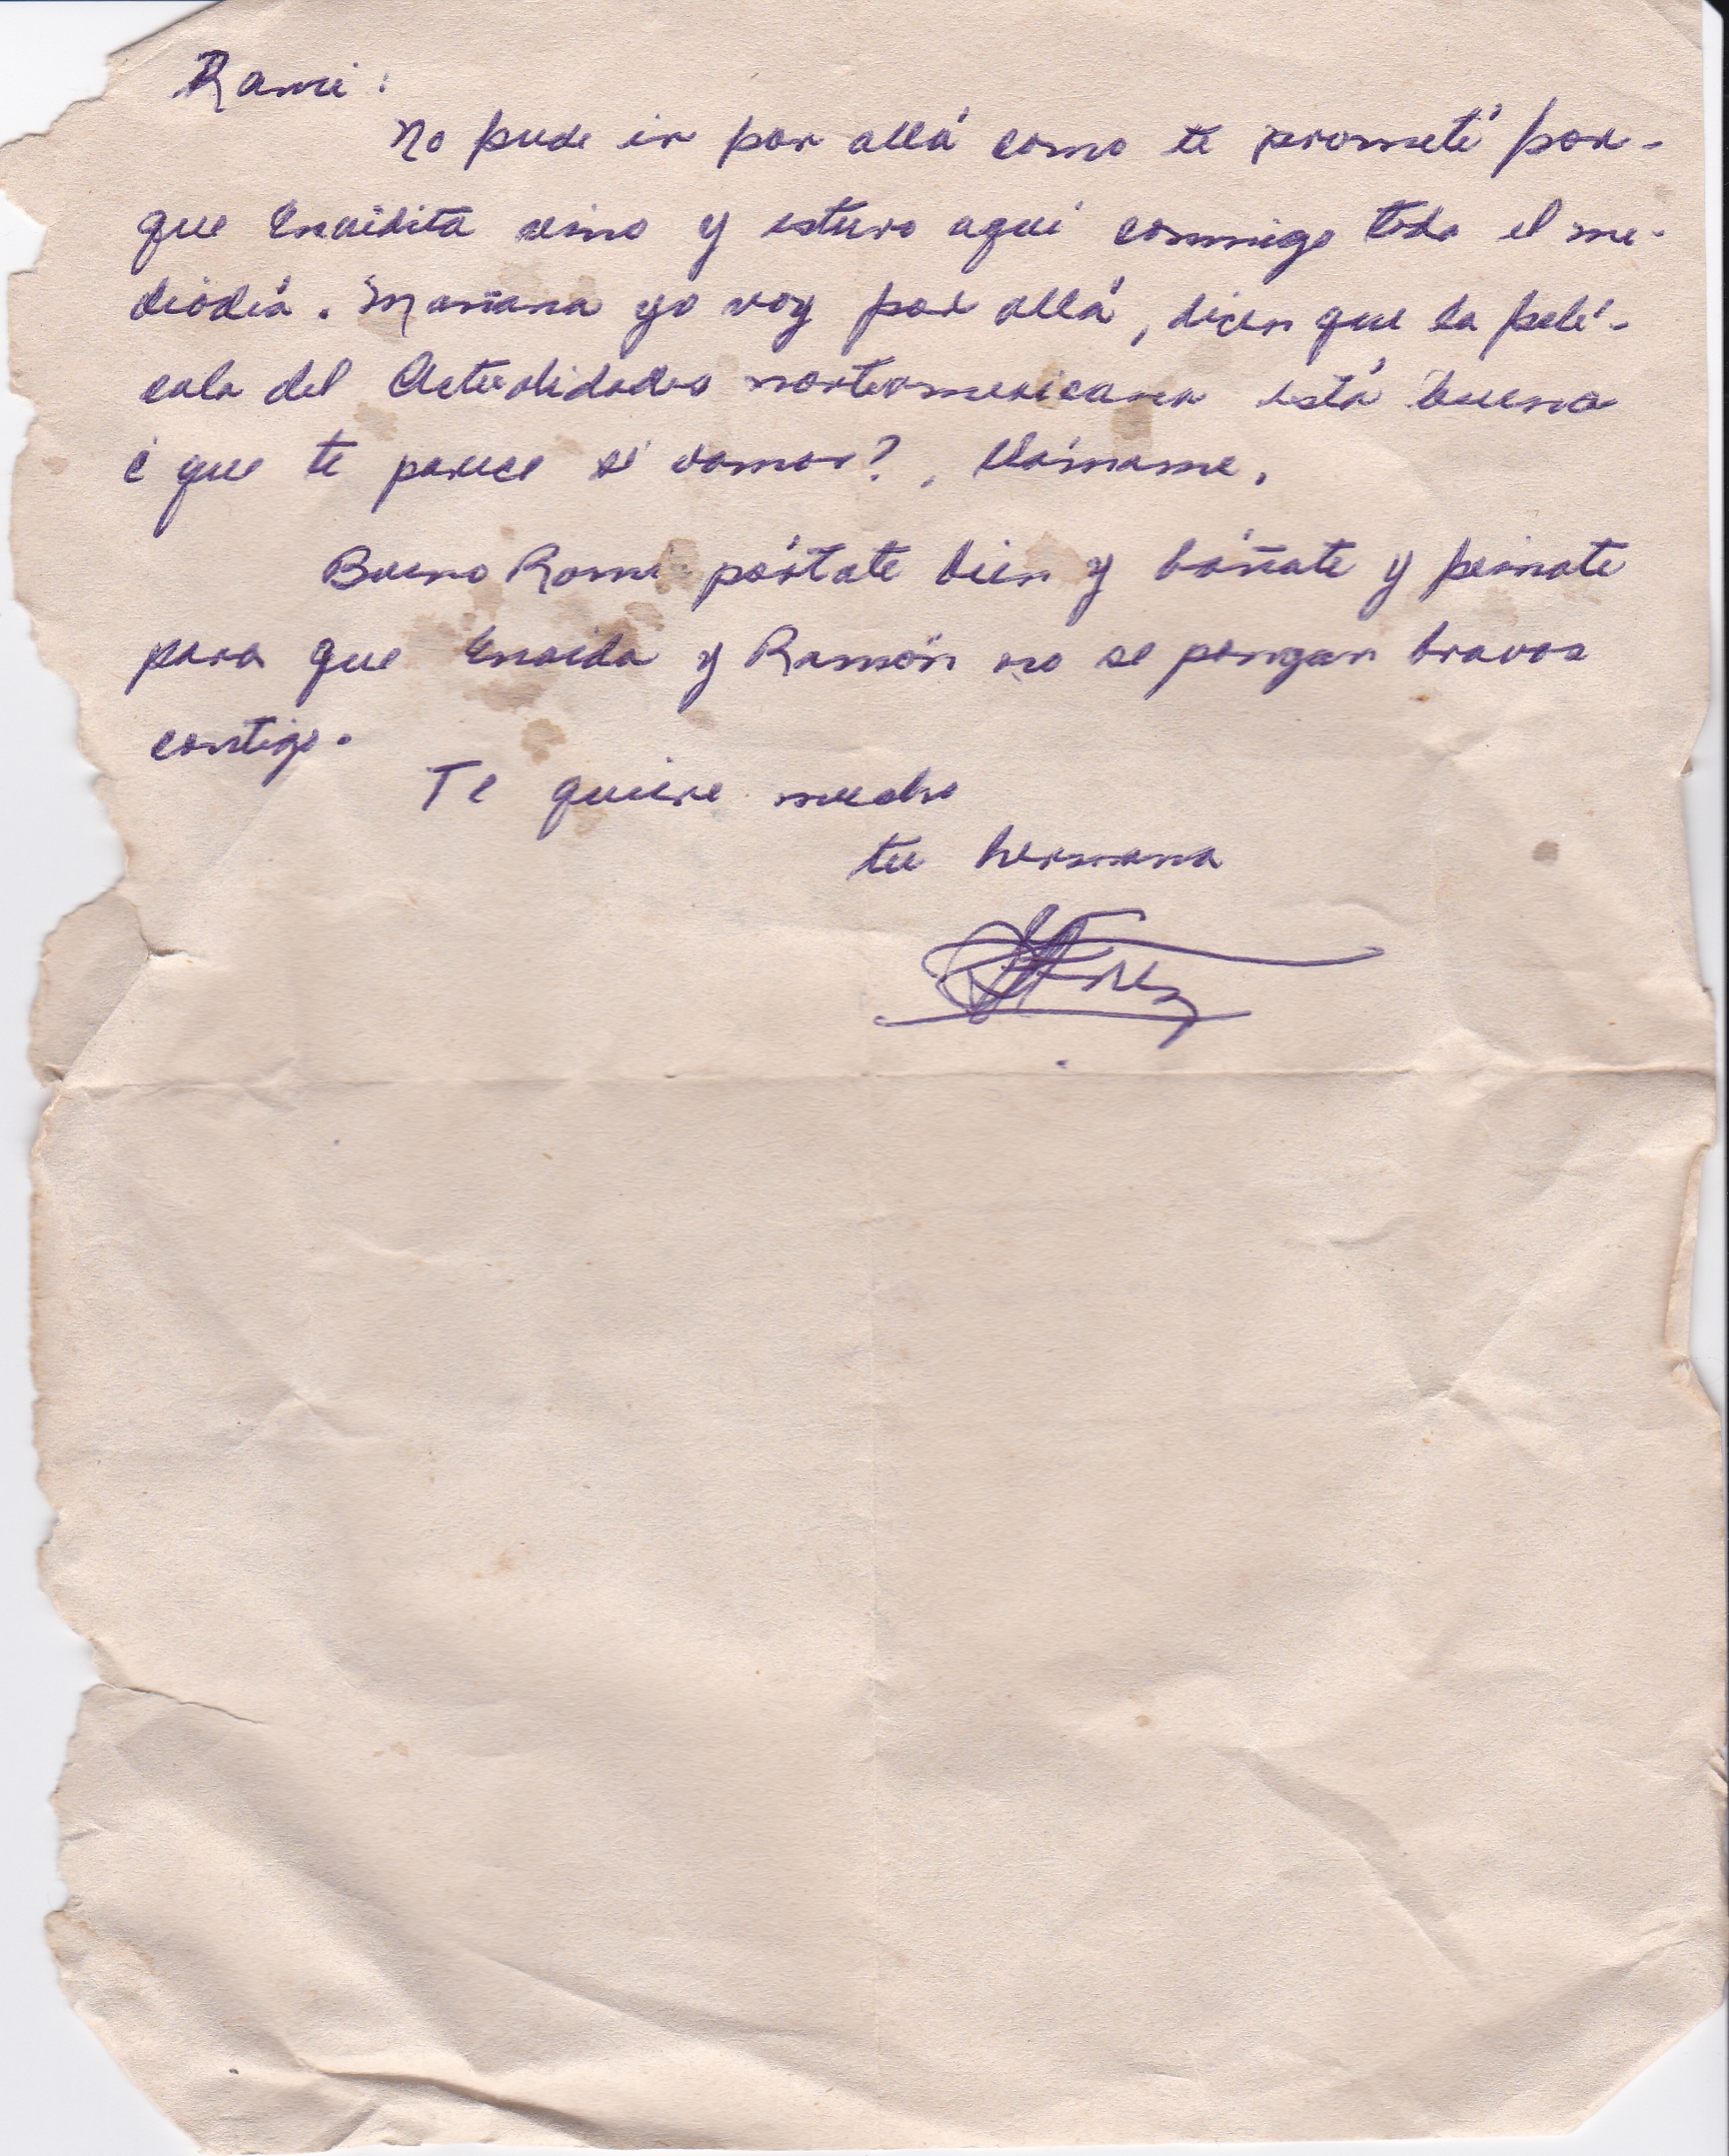 Rami:
No pude ir por allá como te prometí por-
que Enaidita vino y estuvo aquí conmigo todo el me-
diodía. Mañana yo voy por allá, dicen que la pelí-
cula del Actualidades norteamericana está buena
¿que te parece si vamos?, llámame.
Bueno Rami pórtate bien y báñate y peinate
para que Enaida y Ramón no se pongan bravos
contigo.
Te quiere mucho
tu hermana